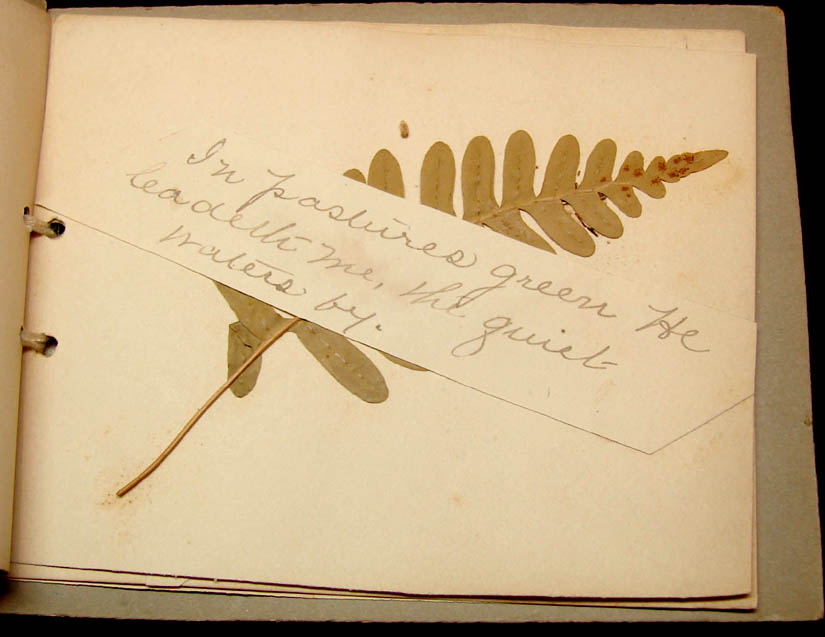 In pastures green He
leadeth me, the quiet
waters by.